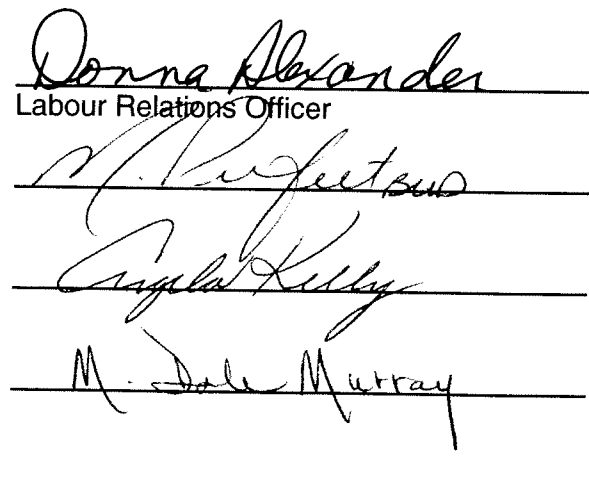 Donna Alexander
Labour Relations Officer
M. Perfect
Angela Kelly
M. Dale Murray